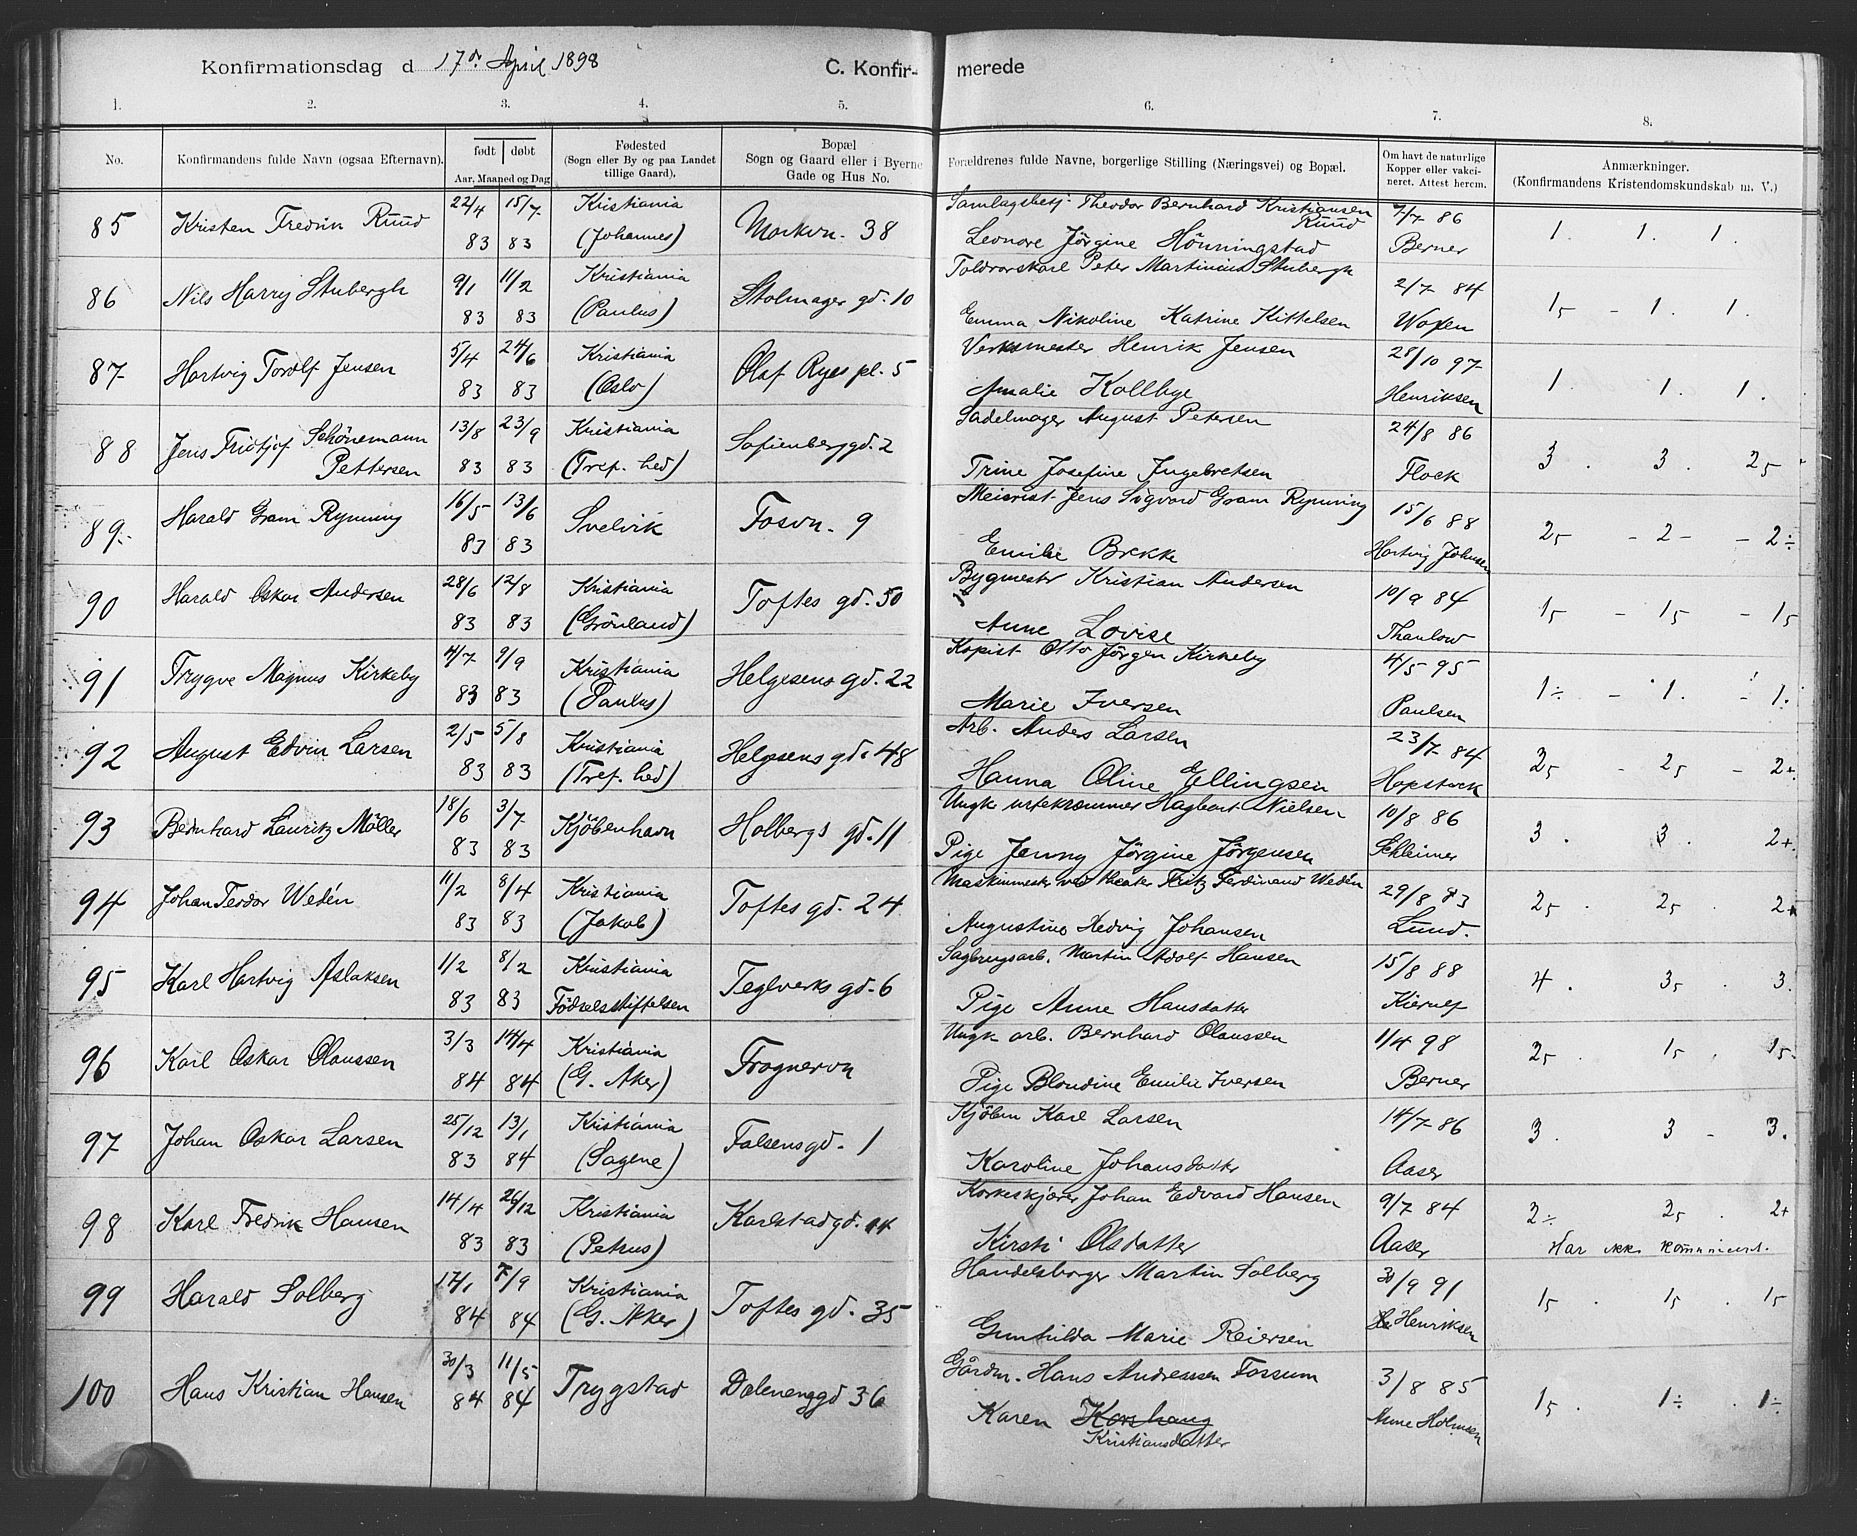 Konfirmationsdag d 17de April 1898 C. Konfir- merede
1. 2. 3. 4. 5. 6. 7. 8.
No. Konfirmandens fulde Navn (ogsaa Efternavn). født døbt Aar, Maaned og Dag Fødested (Sogn eller By og paa Landet tillige Gaard). Bopæl Sogn og Gaard eller i Byerne Gade og Hus No. Forældrenes fulde Navne, borgerlige Stilling (Næringsvei) og Bopæl. Om havt de naturlige Kopper eller vaccineret. Attest herom. Anmærkninger. (Konfirmandens Kristendomskundskab m. V.)
85 Kristen Fredrin Ruud 22/4 83 15/7 83 Kristiania (Johannes) Markvn. 38 Samlagsbetj. Theodor Bernhard Kristiansen Ruud
Leonore Jørgine Hönningstad 7/7 86 Berner 1. 1. 1.
86 Nils Harry Stubergh 9/1 83 11/2 83 Kristiania (Paulus) Stolmager gd. 10 Toldrorskarl Peter Martinius Stubergh
Emma Nikoline Katrine Kittelsen 2/7 84 Woxen 15 - 1. 1.
87 Hartvig Torolf Jensen 5/4 83 24/6 83 Kristiania (Oslo) Olaf Ryes pl. 5 Verksmester Henrik Jensen
Amalie Kollbye 28/10 97 Henriksen 1. 1. 1.
88 Jens Fridtjof Schönemann Pettersen 13/8 83 23/9 83 Kristiania (Tref. hed) Sofienberggd. 2 Sadelmager August Petersen
Trine Josefine Ingebretsen 24/8 86 Flock 3. 3. 25
89. Harald Gram Rynning 16/5 83 13/6 83 Svelvik Fosvn. 9 Meierist Jens Sigvard Gram Rynning
Emilie Brekke 15/6 88 Hartvig Johnsen 25 - 2 - - 2÷
90 Harald Oskar Andersen 28/6 83 12/8 83 Kristiania (Grönland) Toftes gd. 50 Bygmester Kristian Andersen
Anne Lovise 10/9 84 Thaulow 15 - 15 - 15
91 Trygve Magnus Kirkeby 4/7 83 9/9 83 Kristiania (Paulus) Helgesens gd. 22 Kopist Otto Jörgen Kirkeby
Marie Iversen 4/5 95 Paulsen 1÷ - 1. 1.
92 August Edvin Larsen 2/5 83 5/8 83 Kristiania (Tref. hed) Helgesens gd. 48 Arb. Anders Larsen
Hanna Oline Ellingsen 23/7 84 Hopstock 25 - 25 - 2+
93 Bernhard Lauritz Möller 18/6 83 3/7 83 Kjöbenhavn Holbergs gd. 11 Ungk urtekræmmer Hagbart Nielsen
Pige Jenny Jörgine Jörgensen 10/8 86 Schleimer 3. 3. 2+
94 Johan Teodor Wedén 11/2 83 8/4 83 Kristiania (Jakob) Toftes gd. 24 Maskinmester ved theater Fritz Ferdinand Wedén
Augustine Hedvig Johansen 29/8 83 Lund. 25. 25. 2+
95 Karl Hartvig Aslaksen 1/2 83 8/2 83 Kristiania Födselsstiftelsen Teglverks gd. 6 Sagbrugsarb. Martin Adolf Hansen
Pige Anne Hansdatter 15/8 88 Kierulf 4. 35. 3.
96 Karl Oskar Olaussen 3/3 84 14/4 84 Kristiania (G. Aker) Frognervn Ungk arb. Bernhard Olaussen
Pige Blondine Emilie Iversen 1/4 98 Berner 25. 15. 15.
97 Johan Oskar Larsen 25/12 83 13/1 84 Kristiania (Sagene) Falsensgd. 1 Kjöbm Karl Larsen
Karoline Johansdatter 14/7 86 Aaser 3. 3 - 3.
98 Karl Fredrik Hansen 14/4 83 26/12 83 Kristiania (Petrus) Karlstadgd. 14 Korkeskjærer Johan Edvard Hansen
Kirsti Olsdatter 9/7 84 Aaser 2÷ 25. 2+
Har ikke kommuniceret.
99 Harald Solberg 17/1 84 7/9 84 Kristiania (G. Aker) Toftes gd. 35 Handelsborger Martin Solberg
Gunhilda Marie Reiersen 30/9 91 Henriksen 15. 15. 15
100 Hans Kristian Hansen 30/3 84 11/5 84 Trygstad Dalenenggd 36 Gårdm. Hans Andreassen Fossum
Karen Korshaug
Kristiansdatter 3/8 85 Anne Holmsen 15. 1÷. 1÷